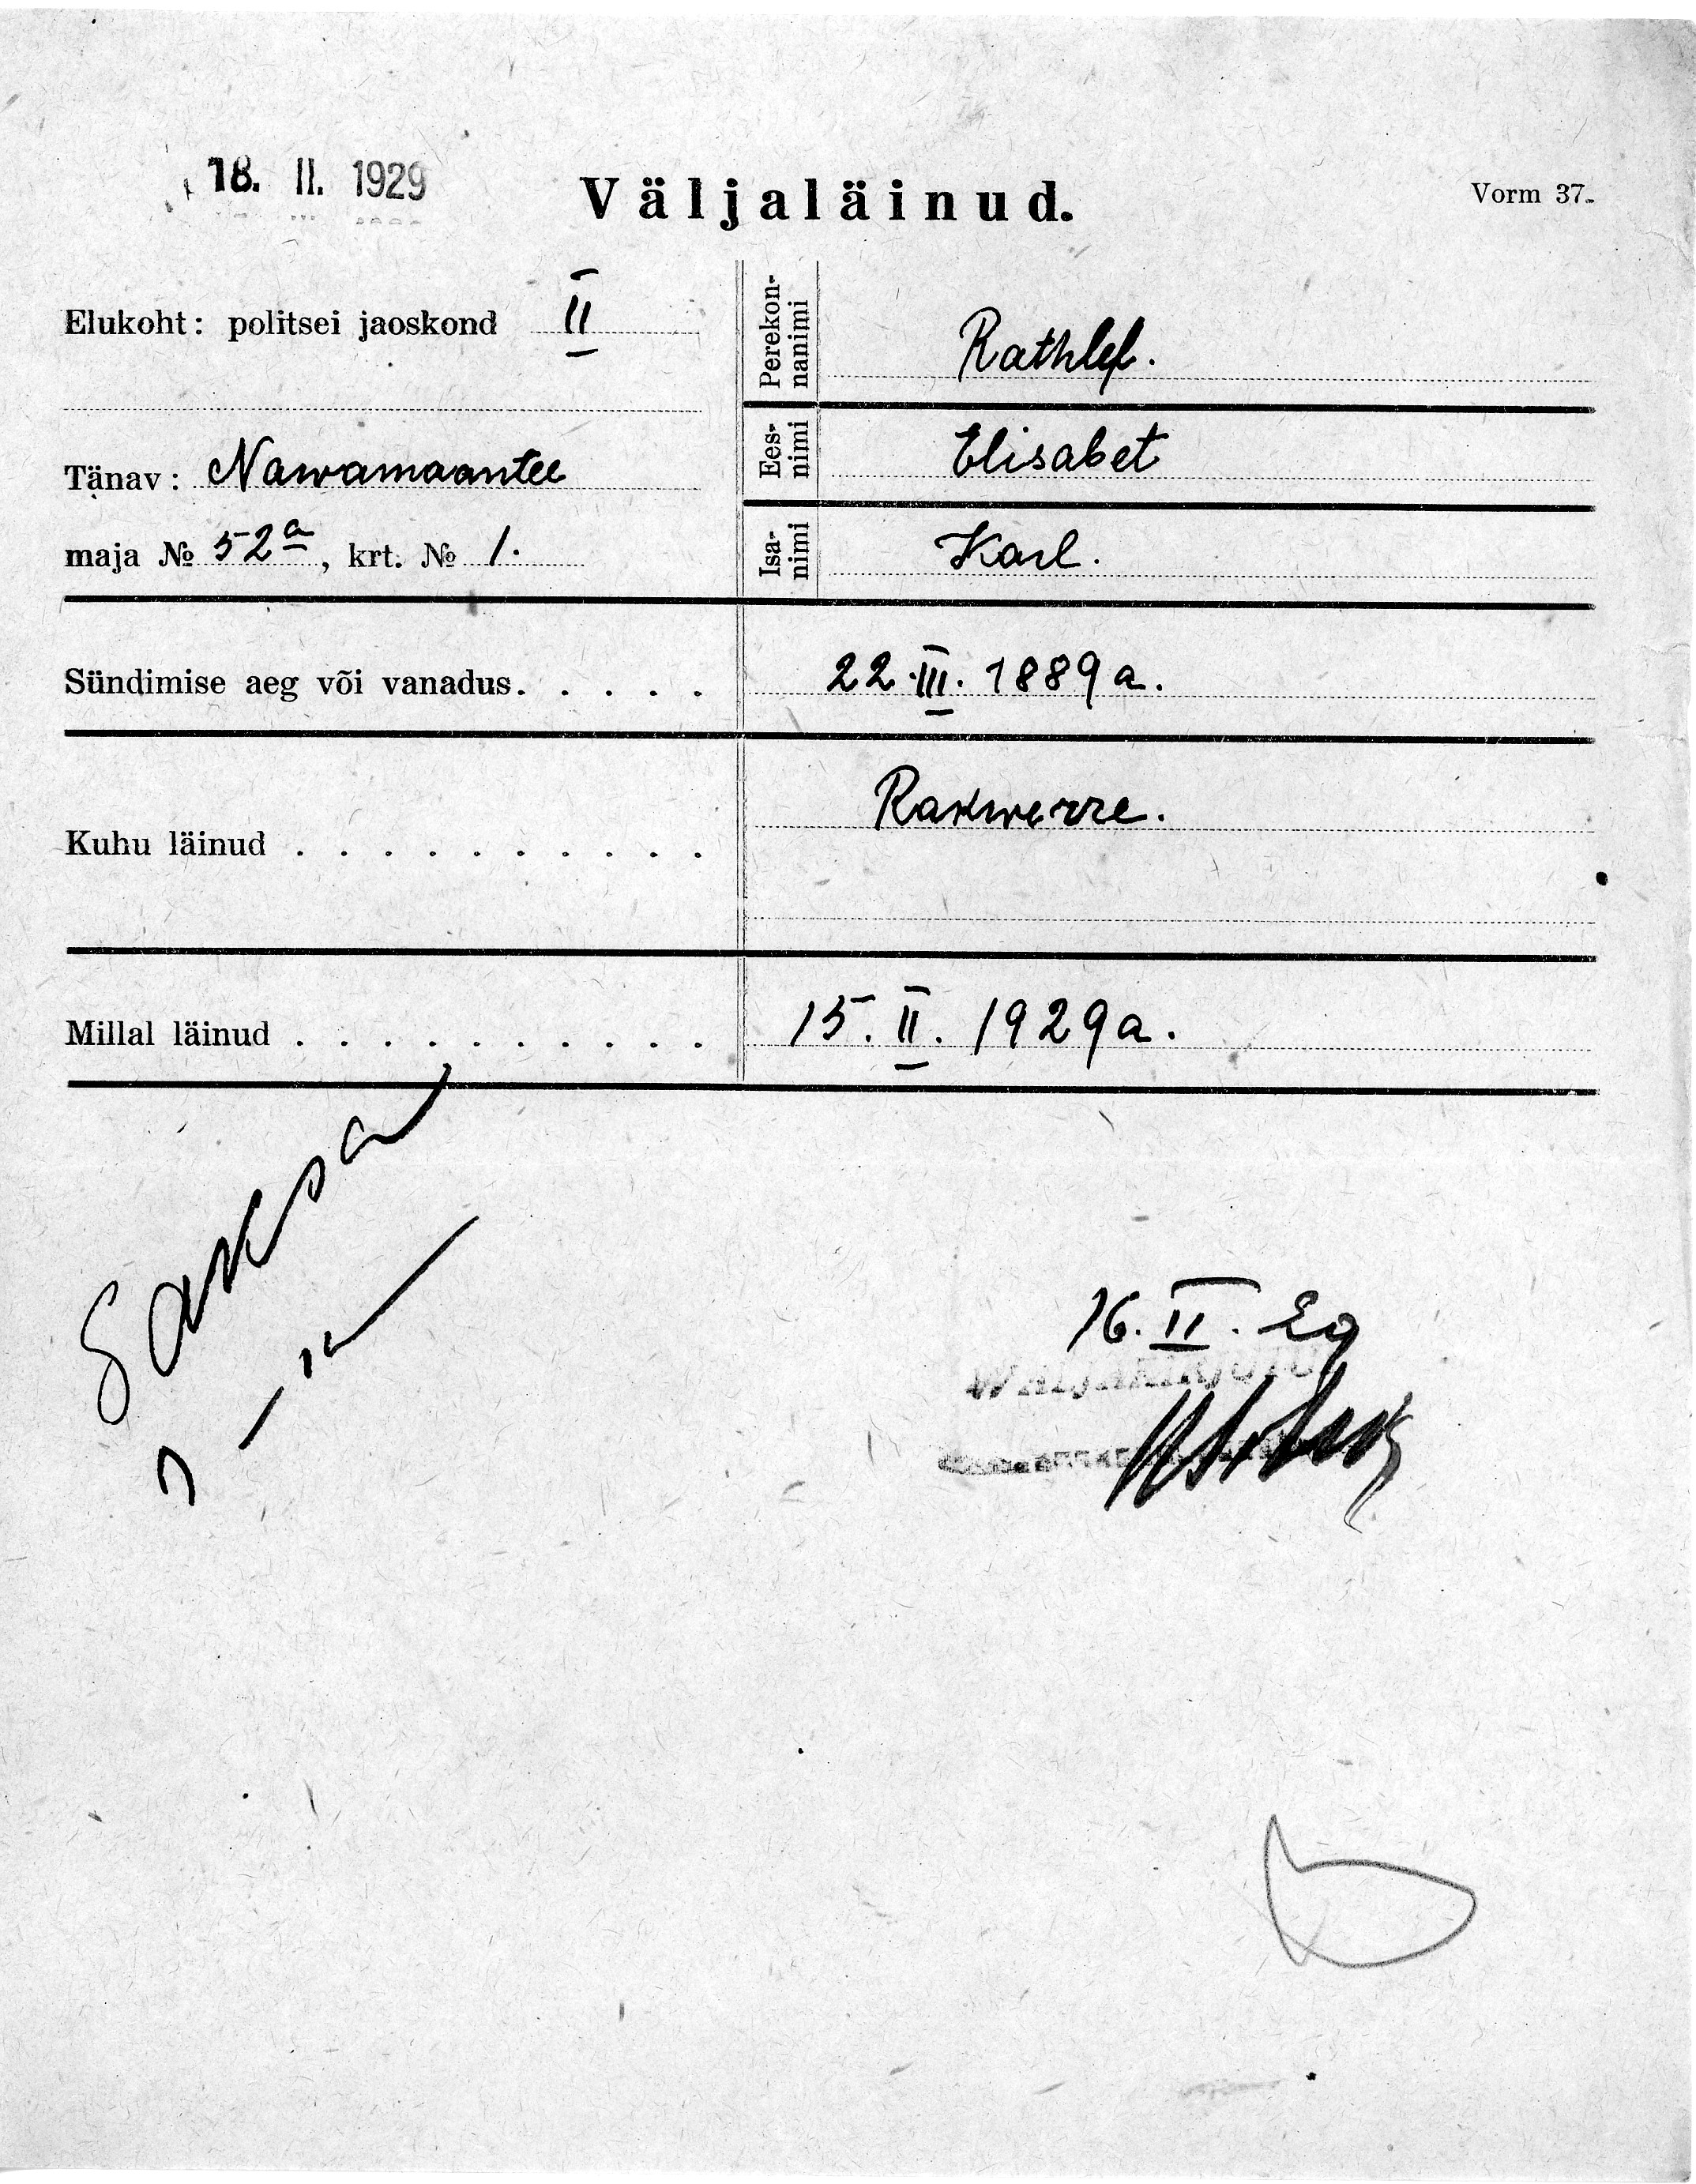 18. II. 1929
Väljaläinud.
Vorm 37.
Elukoht: politsei jaoskond II
Tänav: Narvamaantee
maja № 52a, krt. № 1.
Perekonnanimi
Rathlef.
Eesnimi
Elisabet
Isanimi
Karl.
Sündimise aeg või vanadus. . . . . 22.III. 1889 a.
Kuhu läinud . . . . . . . . . . Rakwerre.
Millal läinud . . . . . . . . . . 15. II. 1929 a.
Saksa
16. II. 29